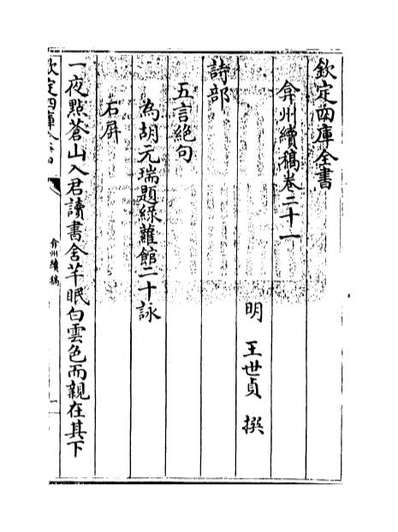 欽定四庫全書
弇州續稿卷二十一
明 王世貞 撰
詩部
五言絶句
為胡元瑞題綠蘿館二十詠
右屏
一夜點蒼山入君讀書舍芊眠白雲色而親在其下
欽定四庫全書
弇州續稿
一